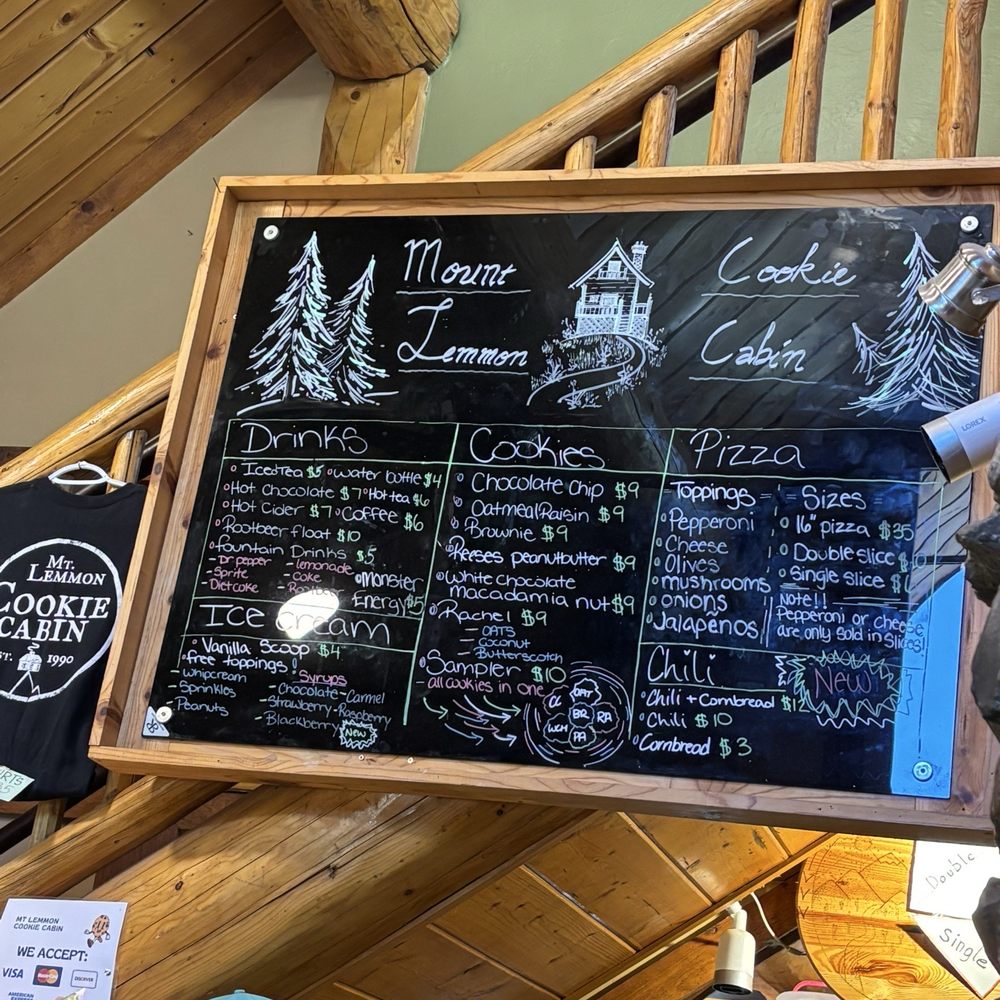 Mount
Lemmon
Cookie
Cabin
Drinks
Iced Tea $5 Water bottle $4
Hot Chocolate $7 Hot tea $6
Hot Cider $7 Coffee $6
Rootbeer float $10
fountain Drinks $5
- Dr pepper - lemonade
- Sprite - coke
- Diet coke
Monster
Energy $5
Ice Cream
Vanilla Scoop $4
free toppings!
- whipcream
- Sprinkles
- Peanuts
Syrups
- Chocolate - Carmel
- Strawberry - Raspberry
- Blackberry
New
Cookies
Chocolate Chip $9
Oatmeal Raisin $9
Brownie $9
Reeses peanutbutter $9
White Chocolate
macadamia nut $9
Rachel $9
- OATS
- Coconut
- Butterscotch
Sampler $10
all cookies in one
OAT
CC
BR
RA
WCM
PA
Pizza
Toppings
Pepperoni
Cheese
Olives
mushrooms
onions
Jalapeños
Sizes
16" pizza $35
Double slice
Single slice
NOTE!!
Pepperoni or cheese
are only sold in slices!
Chili
New!
Chili + Cornbread
Chili $10
Cornbread $3
MT.
LEMMON
COOKIE
CABIN
EST. 1990
LOREX
MT LEMMON
COOKIE CABIN
WE ACCEPT:
VISA MasterCard DISCOVER
AMERICAN
Double
Single